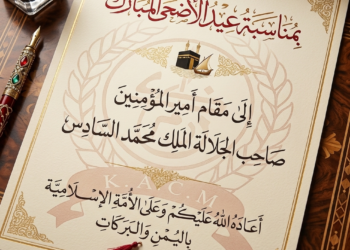 بمناسبة عيد الأضحى المبارك
إِلَى مَقَامِ أَمِيرِ الْمُؤْمِنِينَ
صَاحِبِ الجَلَالَةِ المَلِكِ مُحَمَّد السَّادِس
K.A.C.M
أَعَادَهُ اللهُ عَلَيْكُمْ وَعَلَى الأُمَّةِ الإِسْلَامِيَّةِ
بِاليُمْنِ وَالبَرَكَاتِ